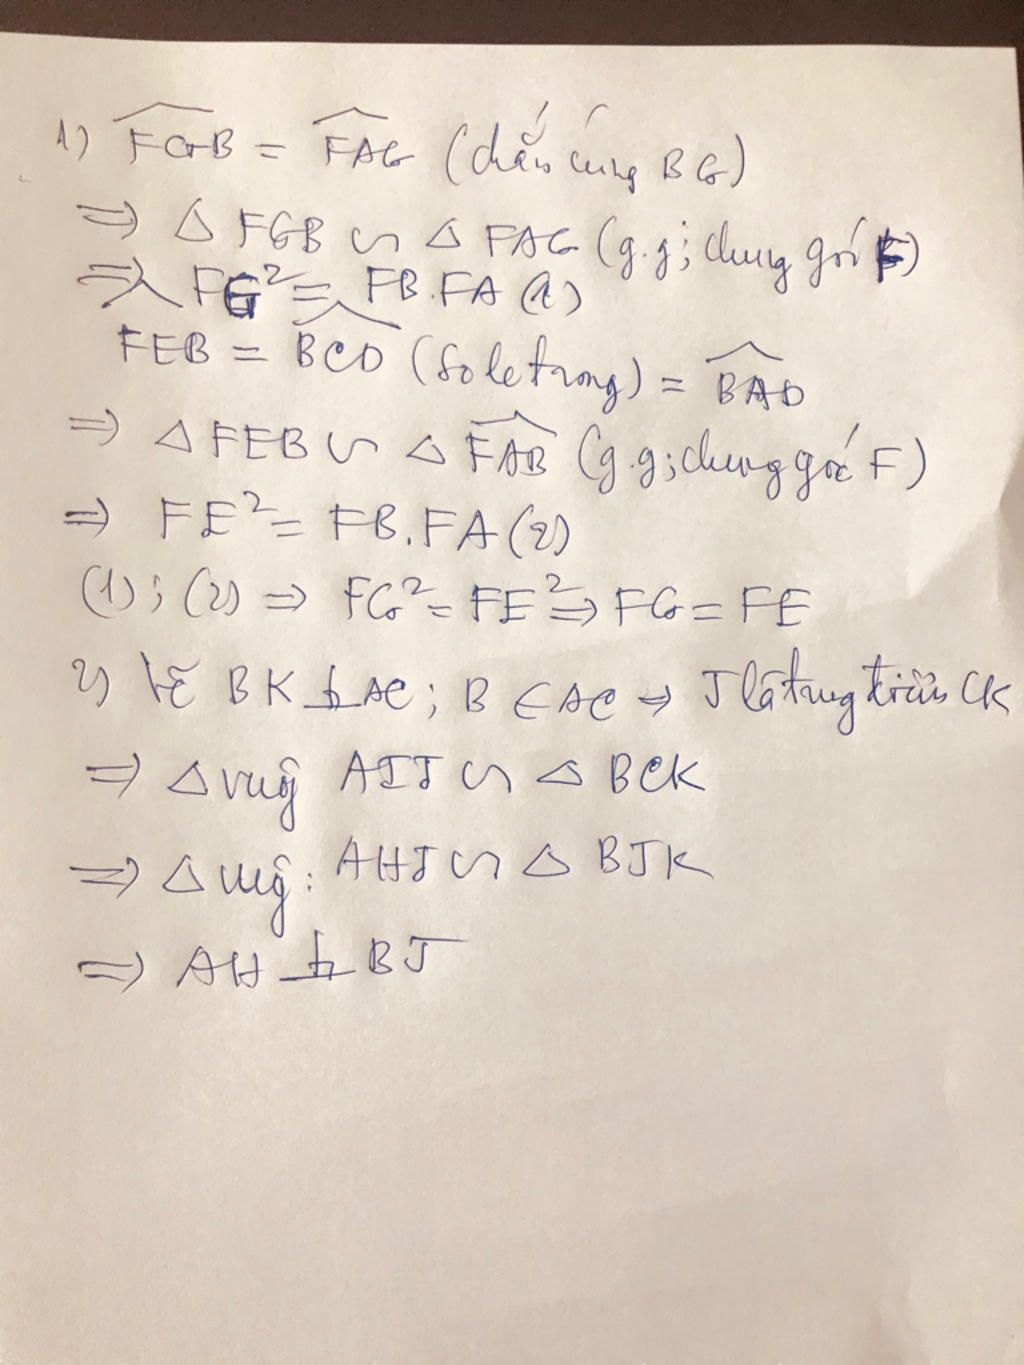 1) FGB = FAG (chắn cung BG)
⇒ △ FGB ∽ △ FAG (g.g; chung góc F)
⇒ FG² = FB.FA (1)
FEB = BCD (so le trong) = BAD
⇒ △ FEB ∽ △ FAB (g.g; chung góc F)
⇒ FE² = FB.FA (2)
(1); (2) ⇒ FG² = FE² ⇒ FG = FE
2) Vẽ BK ⊥ AC; B ∈ AC ⇒ J là trung điểm CK
⇒ △ vug AIJ ∽ △ BCK
⇒ △ vug: AHJ ∽ △ BJK
⇒ AH ⊥ BJ